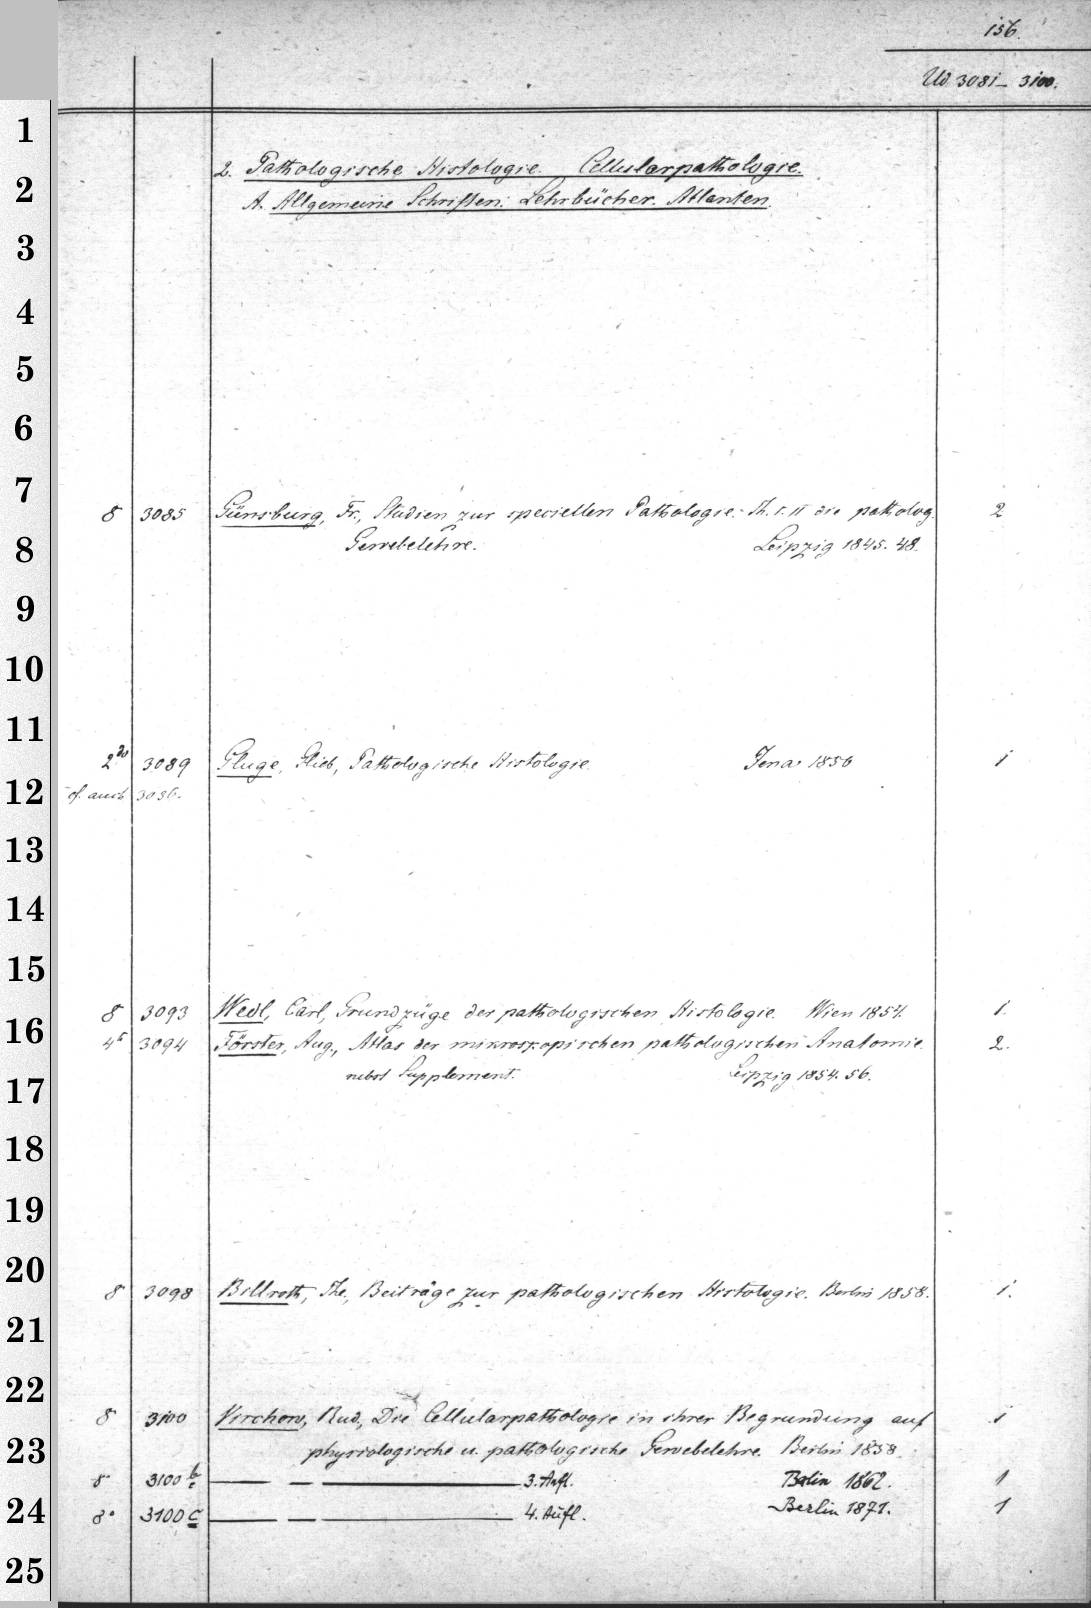 156.
Ud 3081–3100.
2. Pathologische Histologie. Cellularpathologie.
A. Allgemeine Schriften. Lehrbücher. Atlanten.
8 3085 Günsburg, Fr., Studien zur speciellen Pathologie. Th. I. II die patholog. 2
Gewebelehre. Leipzig 1845. 48.
3089 Gluge, Glieb, Pathologische Histologie. Jena 1850 1
cf. auch 3036.
8 3093 Wedl, Carl, Grundzüge der pathologischen Histologie. Wien 1854. 1.
4° 3094 Förster, Aug., Atlas der mikroskopischen pathologischen Anatomie. 2.
nebst Supplement. Leipzig 1854. 56.
8 3098 Billroth, The, Beiträge zur pathologischen Histologie. Berlin 1858. 1.
8 3100 Virchow, Rud., Die Cellularpathologie in ihrer Begründung auf 1
physiologische u. pathologische Gewebelehre. Berlin 1858.
8 3100 b — — — 3. Aufl. Berlin 1862. 1
8° 3100 c — — — 4. Aufl. Berlin 1871. 1
1
2
3
4
5
6
7
8
9
10
11
12
13
14
15
16
17
18
19
20
21
22
23
24
25